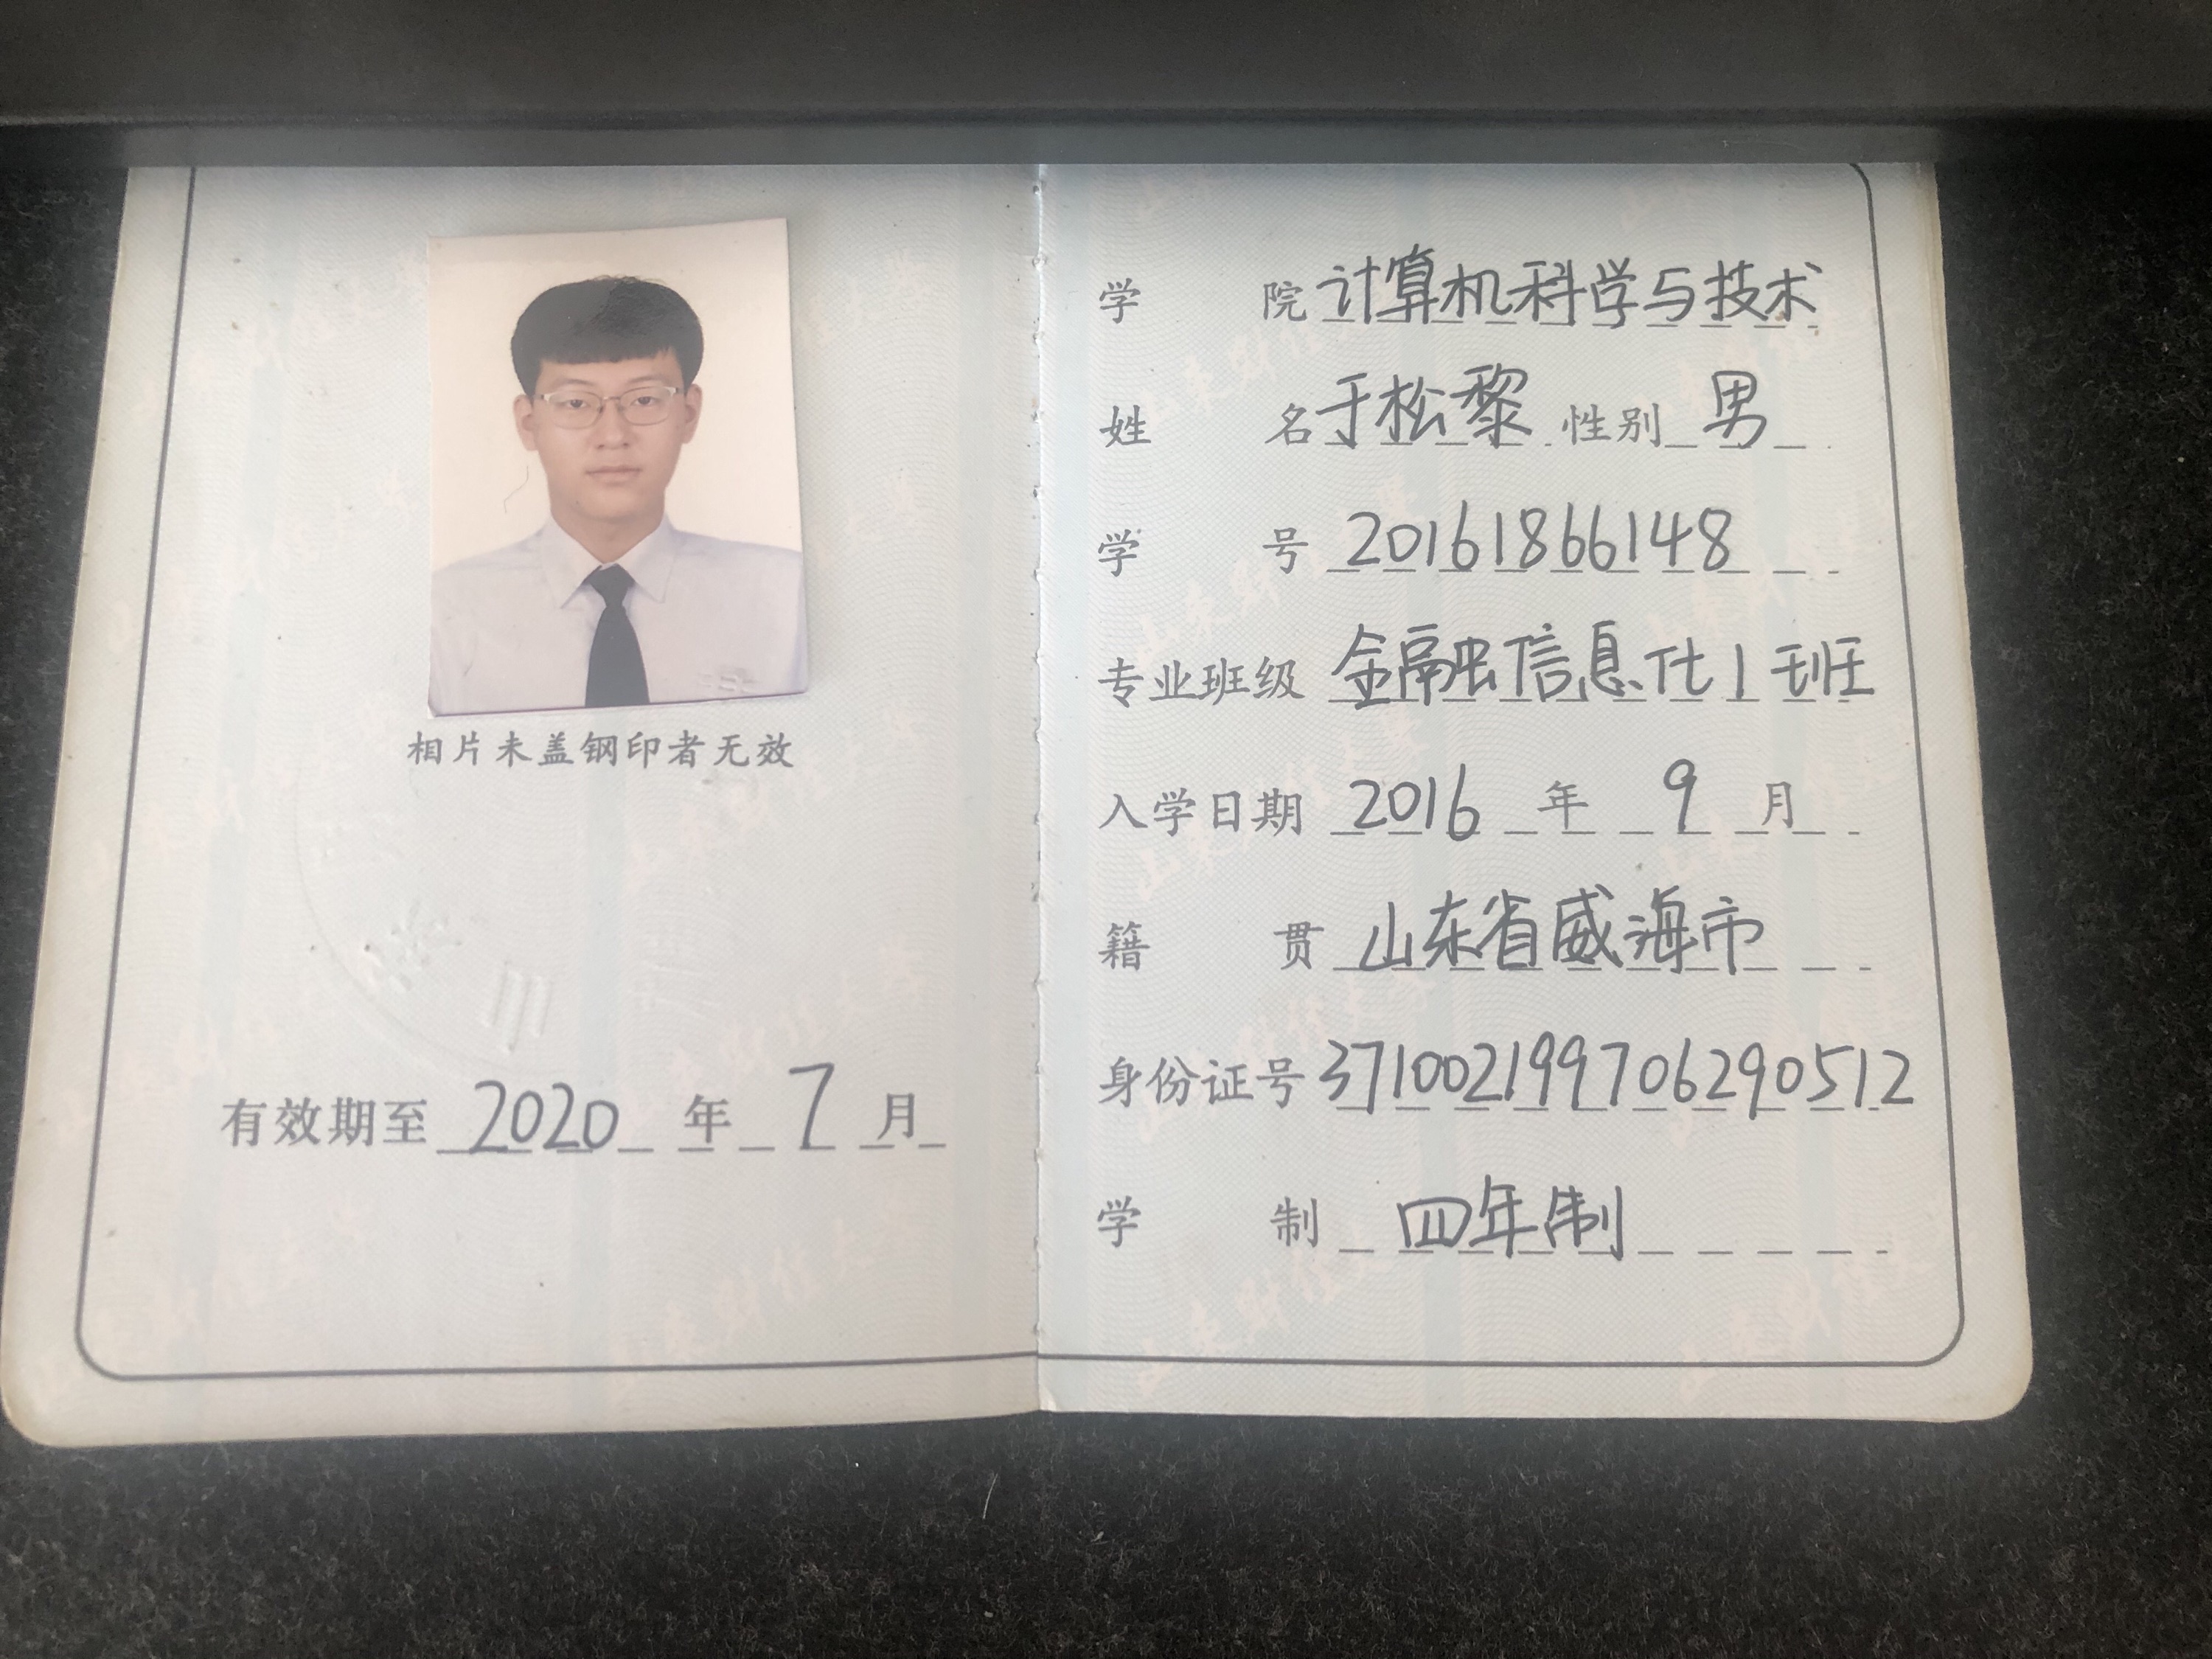 相片未盖钢印者无效
有效期至 2020 年 7 月
学院 计算机科学与技术
姓名 于松黎 性别 男
学号 20161866148
专业班级 金融信息化1班
入学日期 2016 年 9 月
籍贯 山东省威海市
身份证号 371002199706290512
学制 四年制